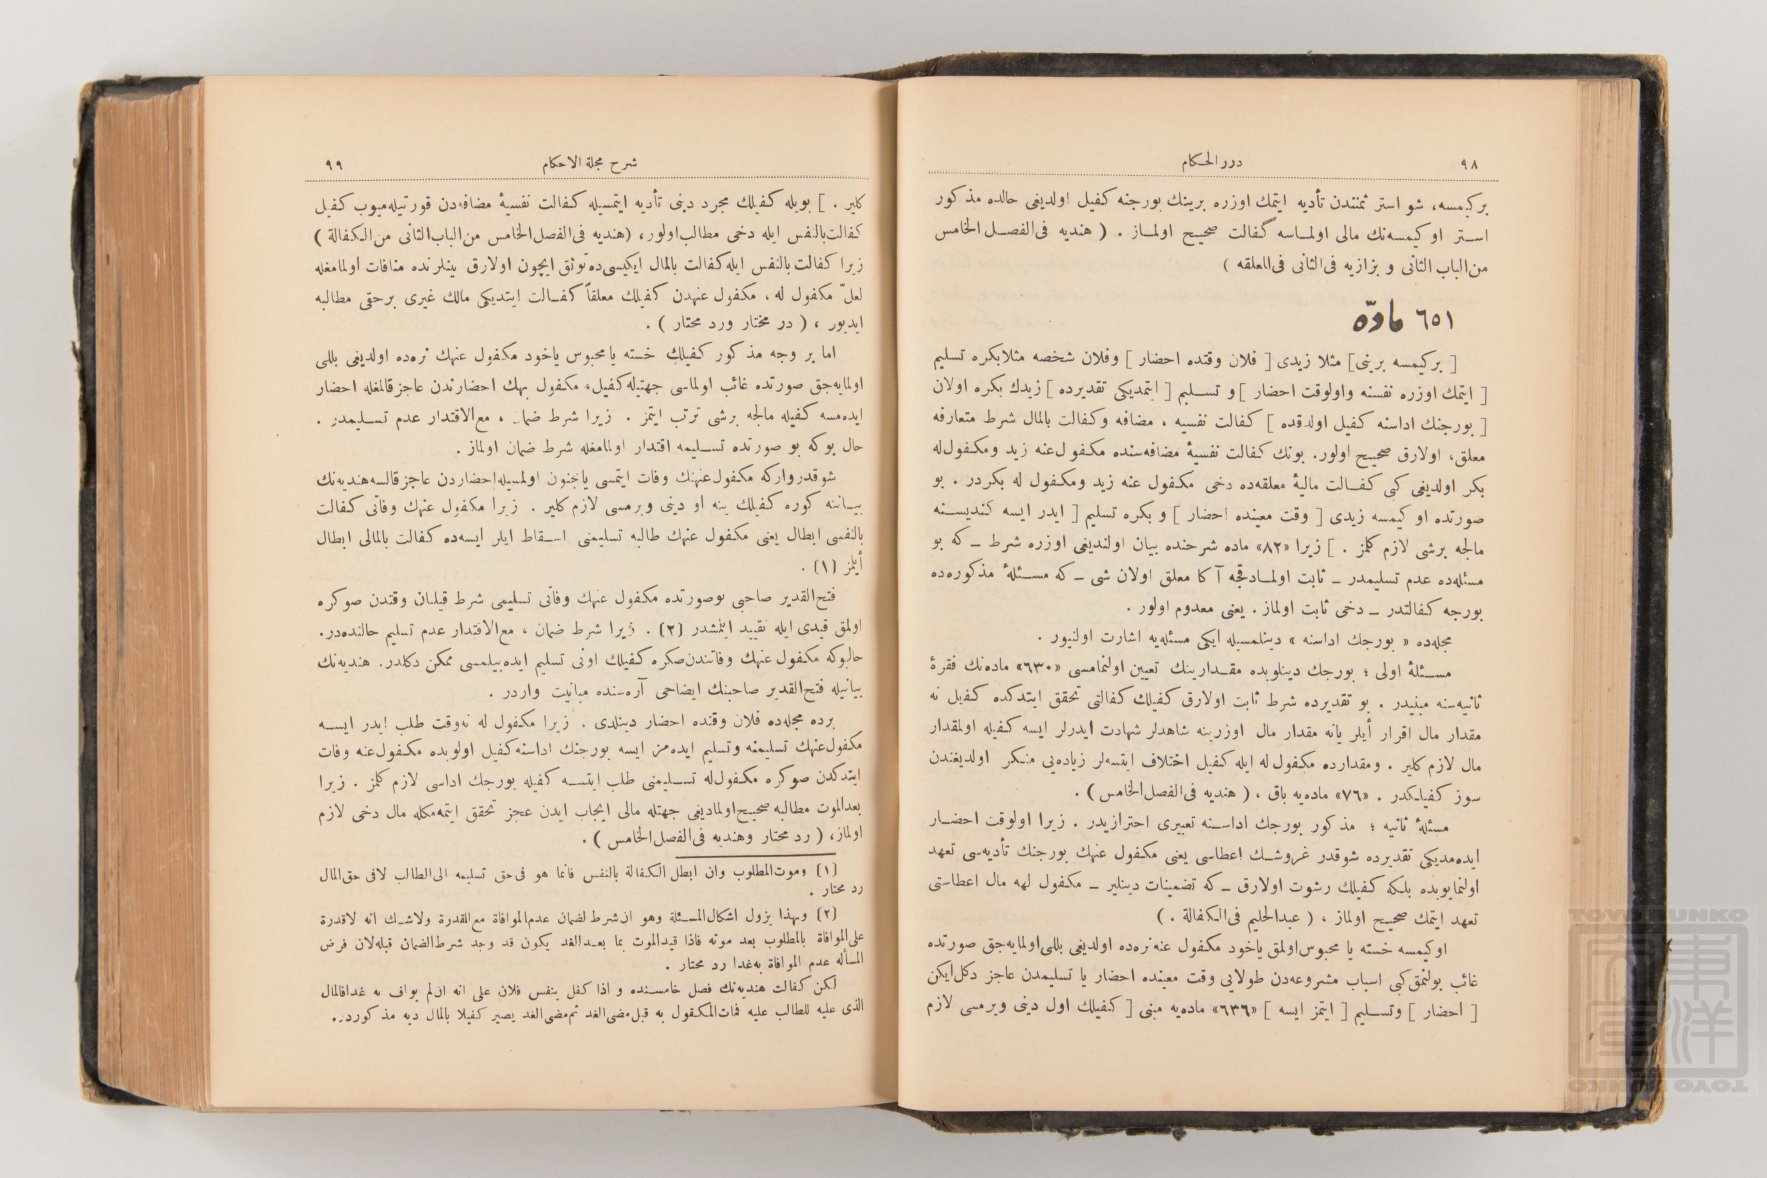 ٩٨
درر الحكام
بركيمسه، شو استر ثمنندن تأديه ايتمك اوزره برينك بورجنه كفيل اولديغى حالده مذكور
استر اوكيمسه‌نك مالى اولماسه كفالت صحيح اولماز . ( هنديه فى‌الفصل الخامس
من‌الباب الثانى و بزازيه فى‌الثانى فى‌المعلقه )
٦٥١ ماده
[ بركيمسه برينى] مثلا زيدى [ فلان وقتده احضار ] وفلان شخصه مثلابكره تسليم
[ ايتمك اوزره نفسنه واولوقت احضار ] و تسليم [ ايتمديكى تقديرده ] زيدك بكره اولان
[ بورجنك اداسنه كفيل اولدقده ] كفالت نفسيه ، مضافه وكفالت بالمال شرط متعارفه
معلق، اولارق صحيح اولور. بونك كفالت نفسيۀ مضافه‌سنده مكفول‌عنه زيد ومكفول‌له
بكر اولديغى كبى كفالت ماليۀ معلقه‌ده دخى مكفول عنه زيد ومكفول له بكردر . بو
صورتده او كيمسه زيدى [ وقت معينده احضار ] و بكره تسليم [ ايدر ايسه كنديسنه
مالجه برشى لازم كلمز . ] زيرا «٨٢» ماده شرحنده بيان اولنديغى اوزره شرط ــ كه بو
مسئله‌ده عدم تسليمدر ــ ثابت اولمادقجه آ كا معلق اولان شى ــ كه مسئلۀ مذكوره‌ده
بورجه كفالتدر ــ دخى ثابت اولماز . يعنى معدوم اولور .
مجله‌ده « بورجك اداسنه » دينلمسيله ايكى مسئله‌يه اشارت اولنيور .
مسئلۀ اولى ؛ بورجك دينلوبده مقدارينك تعيين اولنمامسى «٦٣٠» ماده‌نك فقرۀ
ثانيه‌سنه مبنيدر . بو تقديرده شرط ثابت اولارق كفيلك كفالتى تحقق ايتدكده كفيل نه
مقدار مال اقرار أيلر يانه مقدار مال اوزرينه شاهدلر شهادت ايدرلر ايسه كفيله اولمقدار
مال لازم كلير . ومقدارده مكفول له ايله كفيل اختلاف ايتسه‌لر زياده‌يى منكر اولديغندن
سوز كفيلكدر . «٧٦» ماده‌يه باق ، ( هنديه فى‌الفصل‌الخامس ) .
مسئلۀ ثانيه ؛ مذكور بورجك اداسنه تعبيرى احترازيدر . زيرا اولوقت احضار
ايده‌مديكى تقديرده شوقدر غروشك اعطاسى يعنى مكفول عنهك بورجنك تأديه‌سى تعهد
اولنمايوبده بلكه كفيلك رشوت اولارق ــ كه تضمينات دينلير ــ مكفول لهه مال اعطاسنى
تعهد ايتمك صحيح اولماز ، ( عبدالحليم فى‌الكفالة . )
اوكيمسه خسته يا محبوس‌اولمق ياخود مكفول عنه نره‌ده اولديغى بللى‌اولمايه‌جق صورتده
غائب بولنمق‌كبى اسباب مشروعه‌دن طولايى وقت معينده احضار يا تسليمدن عاجز دكل‌ايكن
[ احضار ] وتسليم [ ايتمز ايسه ] «٦٣٦» ماده‌يه مبنى [ كفيلك اول دينى ويرمسى لازم
شرح مجلة الاحكام
٩٩
كلير . ] بويله كفيلك مجرد دينى تأديه ايتمسيله كفالت نفسيۀ مضافه‌دن قورتيله‌ميوب كفيل
كفالت‌بالنفس ايله دخى مطالب‌اولور، (هنديه فى‌الفصل‌الخامس من‌الباب‌الثانى من‌الكفالة )
زيرا كفالت بالنفس ايله‌كفالت بالمال ايكيسى‌ده‌توثق ايچون اولارق بينلرنده منافات اولمامغله
لعلّ مكفول له ، مكفول عنهدن كفيلك معلقاً كفالت ايتديكى مالك غيرى برحقى مطالبه
ايديور ، ( در مختار ورد محتار ) .
اما بر وجه مذكور كفيلك خسته يامحبوس ياخود مكفول عنهك نره‌ده اولديغى بللى
اولمايه‌جق صورتده غائب اولماسى جهتيله‌كفيل، مكفول بهك احضارندن عاجزقالمغله احضار
ايده‌مسه كفيله مالجه برشى ترتب ايتمز . زيرا شرط ضمان ، مع‌الاقتدار عدم تسليمدر .
حال بوكه بو صورتده تسليمه اقتدار اولمامغله شرط ضمان اولماز .
شوقدرواركه مكفول‌عنهك وفات ايتمسى يامجنون اولمسيله‌احضاردن عاجزقالسه‌هنديه‌نك
بياننه كوره كفيلك ينه او دينى ويرمسى لازم كلير . زيرا مكفول عنهك وفاتى كفالت
بالنفسى ابطال يعنى مكفول عنهك طالبه تسليمنى اسقاط ايلر ايسه‌ده كفالت بالمالى ابطال
أيلمز (١) .
فتح‌القدير صاحبى بوصورتده مكفول عنهك وفاتى تسليمى شرط قيلنان وقتدن صوكره
اولمق قيدى ايله تقييد ايتمشدر (٢) . زيرا شرط ضمان ، مع‌الاقتدار عدم تسليم حالنده‌در.
حالبوكه مكفول عنهك وفاتندن‌صكره كفيلك اونى تسليم ايده‌بيلمسى ممكن دكلدر. هنديه‌نك
بيانيله فتح‌القدير صاحبنك ايضاحى آره‌سنده مباينت واردر .
برده مجله‌ده فلان وقتده احضار دينلدى . زيرا مكفول له نه‌وقت طلب ايدر ايسه
مكفول‌عنهك تسليمنه وتسليم ايده‌مز ايسه بورجنك اداسنه‌كفيل اولوبده مكفول‌عنه وفات
ايتدكدن صوكره مكفول‌له تسليمنى طلب ايتسه كفيله بورجك اداسى لازم كلمز . زيرا
بعدالموت مطالبه صحيح‌اولماديغى جهتله مالى ايجاب ايدن عجز تحقق ايتمه‌مكله مال دخى لازم
اولماز، ( رد محتار وهنديه فى‌الفصل‌الخامس ) .
(١) وموت‌المطلوب وان ابطل الكفالة بالنفس فانما هو فى‌حق تسليمه الى‌الطالب لافى حق‌المال
رد محتار .
(٢) وبهذا يزول اشكال‌المسئلة وهو ان‌شرط‌لضمان عدم‌الموافاة مع‌القدرة ولاشك انه لاقدرة
على‌الموافاة بالمطلوب بعد موته فاذا قيدالموت بما بعدالغد يكون قد وجد شرط‌الضمان قبله‌لان فرض
المسأله عدم الموافاة به‌غدا رد محتار .
لكن كفالت هنديه‌نك فصل خامسنده و اذا كفل بنفس فلان على انه ان‌لم يواف به غدافالمال
الذى عليه للطالب عليه فمات‌المكفول به قبل‌مضى‌الغد ثم‌مضى‌الغد يصير كفيلا بالمال ديه مذكوردر.
TOYO BUNKO
東洋文庫